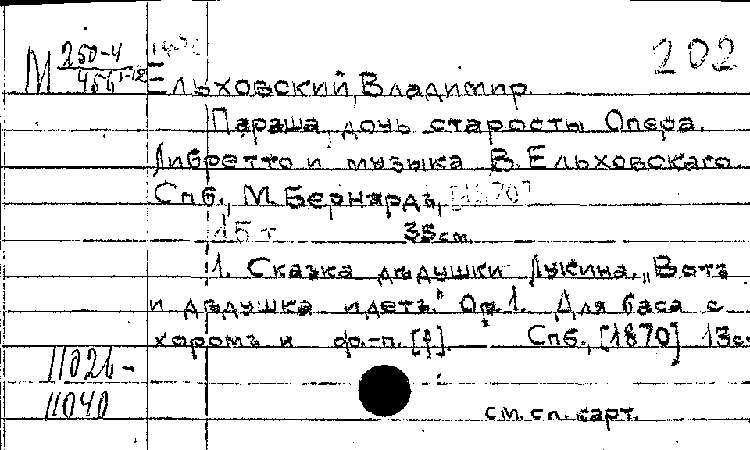 М 250-4 202
456
Ельховский, Владимир.
Параша, дочь старосты Опера.
Либретто и музыка В. Ельховскаго
Спб., М. Бернардъ, [1870]
15 т 35 см.
1. Сказка дѣдушки Лукина. „Вотъ
и дѣдушка идетъ." Ор. 1. Для баса с
хоромъ и ф.-п. [f]. Спб., [1870] 13 с.
11026-
11040
см. сл. карт.